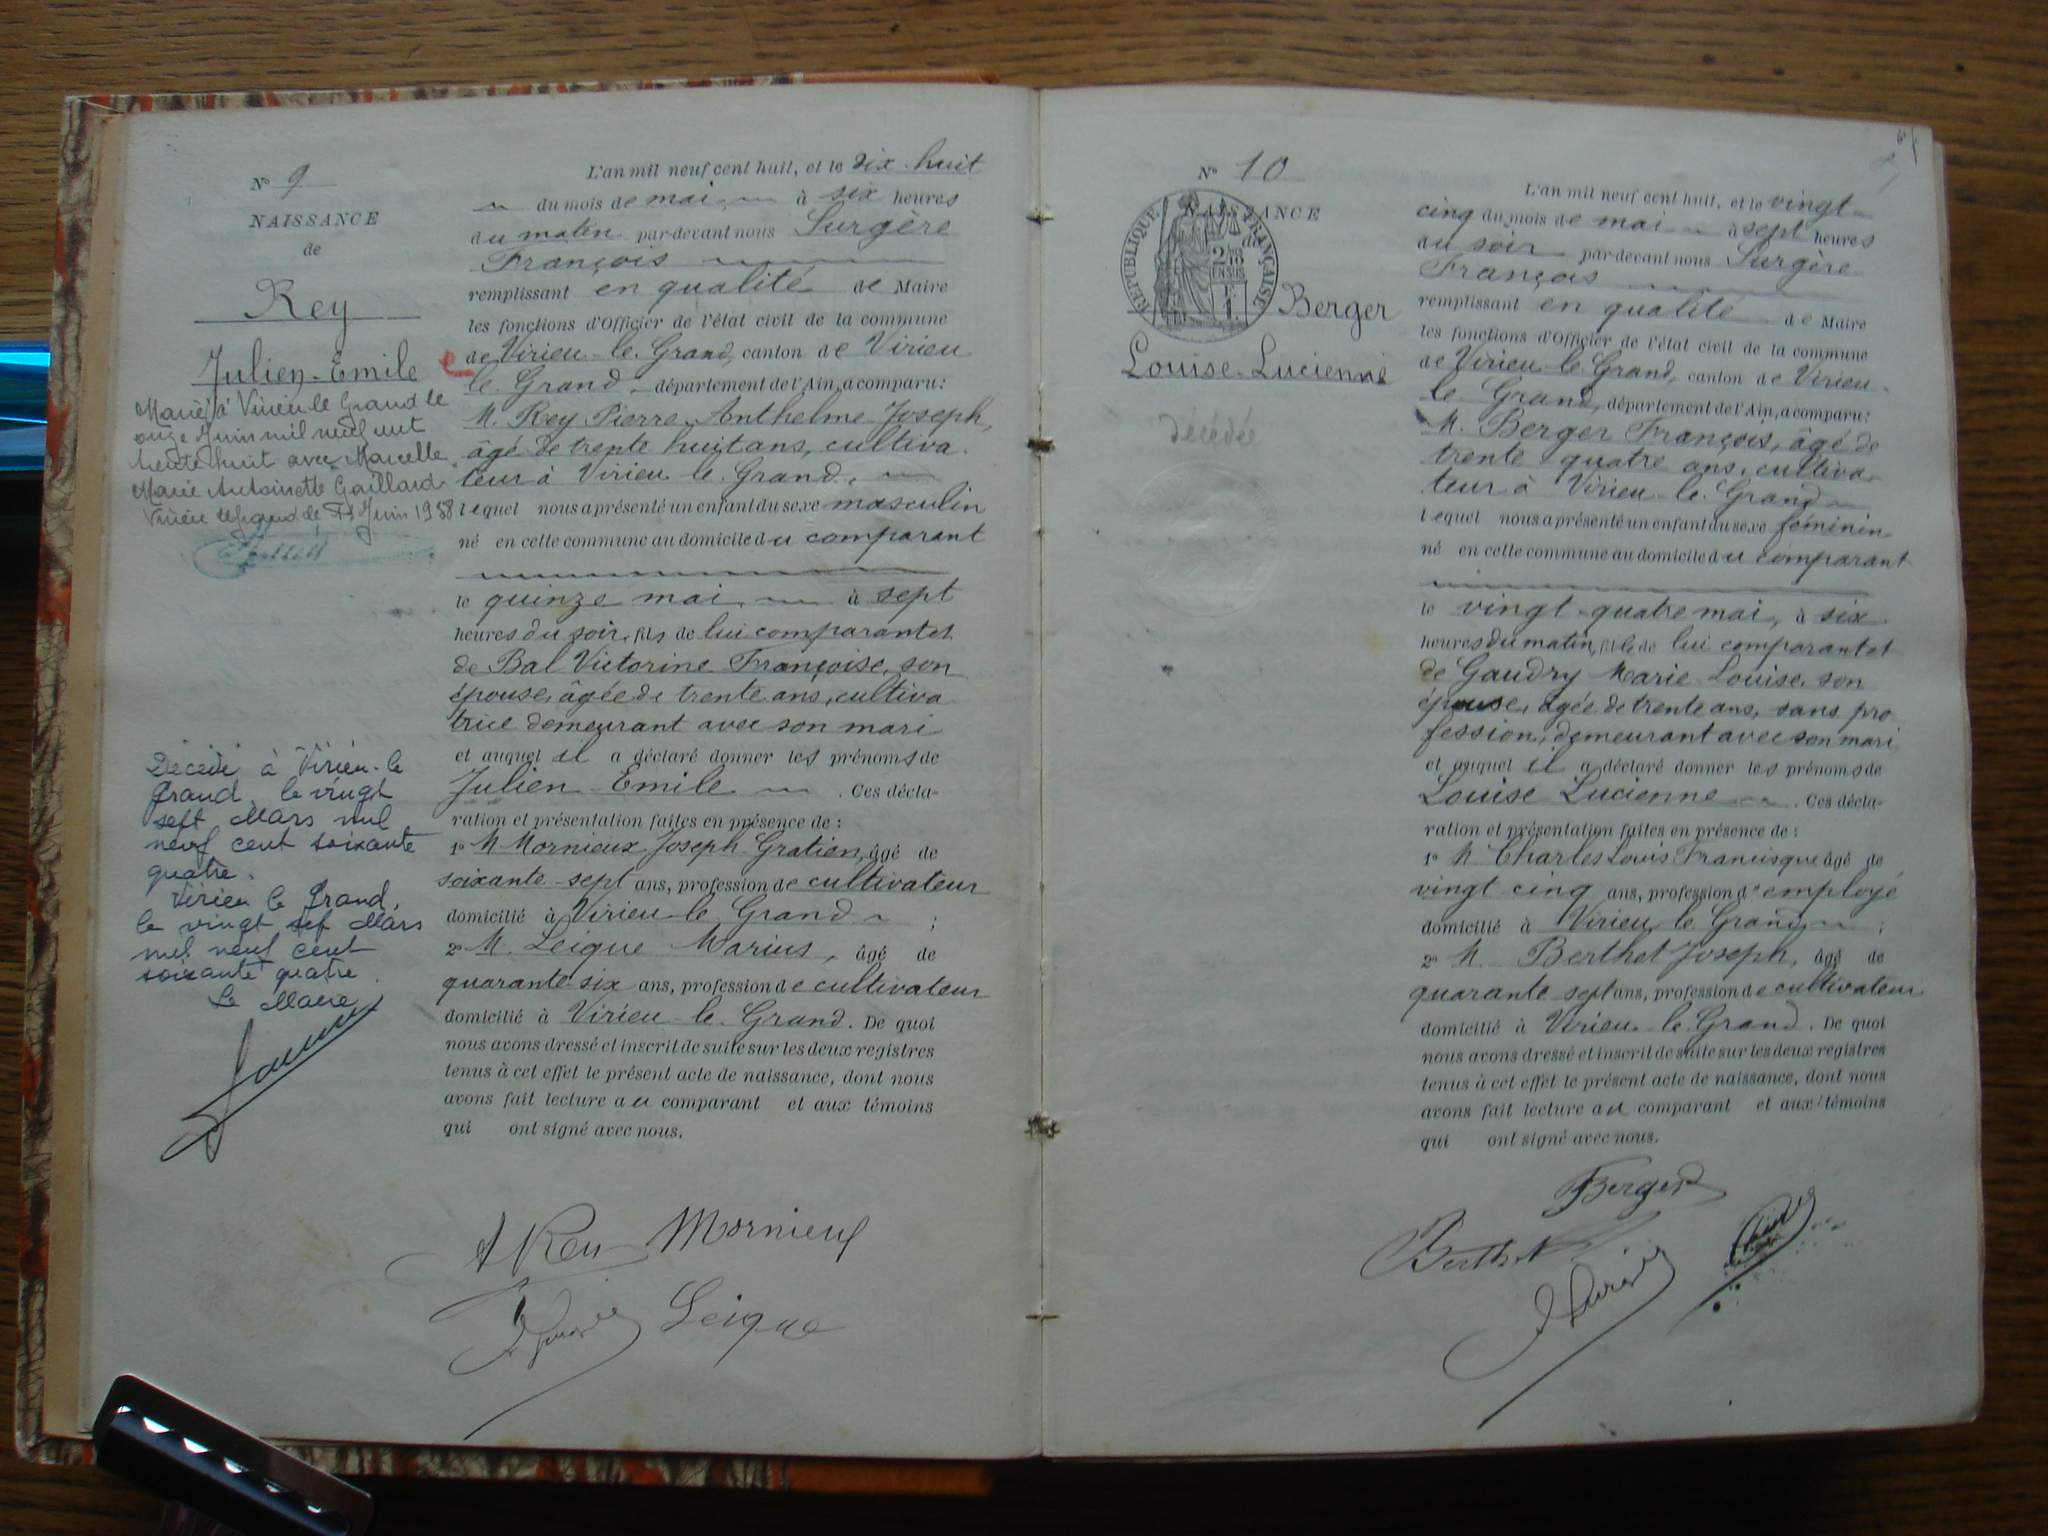 N° 9
NAISSANCE
de
Rey
Julien-Emile
Marié à Virieu le Grand le
onze Juin mil neuf cent
trente huit avec Marcelle
Marie Antoinette Gaillard
Virieu le Grand le Juin 1938
Décédé à Virieu-le
Grand, le vingt
sept Mars mil
neuf cent soixante
quatre.
Virieu le Grand,
le vingt sept Mars
mil neuf cent
soixante quatre.
Le Maire
L'an mil neuf cent huit, et le dix-huit
du mois de mai à six heures
du matin par-devant nous Surgère
François
remplissant en qualité de Maire
les fonctions d'Officier de l'état civil de la commune
de Virieu-le-Grand, canton de Virieu
le-Grand, département de l'Ain, a comparu:
M. Rey Pierre-Anthelme Joseph,
âgé de trente huit ans, cultiva-
teur à Virieu-le-Grand,
lequel nous a présenté un enfant du sexe masculin
né en cette commune au domicile du comparant
le quinze mai, à sept
heures du soir, fils de lui comparant et
de Bal Victorine Françoise, son
épouse, âgée de trente ans, cultiva
trice demeurant avec son mari
et auquel il a déclaré donner les prénoms de
Julien-Emile . Ces décla-
ration et présentation faites en présence de :
1° M Mornieux Joseph-Gratien, âgé de
soixante-sept ans, profession de cultivateur
domicilié à Virieu-le-Grand ;
2° M. Leigue Marius, âgé de
quarante-six ans, profession de cultivateur
domicilié à Virieu-le-Grand. De quoi
nous avons dressé et inscrit de suite sur les deux registres
tenus à cet effet le présent acte de naissance, dont nous
avons fait lecture au comparant et aux témoins
qui ont signé avec nous.
A Rey Mornieux
Leigue
N° 10
NAISSANCE
de
RÉPUBLIQUE FRANÇAISE
Berger
Louise-Lucienne
décédée
L'an mil neuf cent huit, et le vingt-
cinq du mois de mai à sept heures
du soir par-devant nous Surgère
François
remplissant en qualité de Maire
les fonctions d'Officier de l'état civil de la commune
de Virieu-le-Grand, canton de Virieu-
le-Grand, département de l'Ain, a comparu:
M. Berger François, âgé de
trente-quatre ans, cultiva-
teur à Virieu-le-Grand
lequel nous a présenté un enfant du sexe féminin
né en cette commune au domicile du comparant
le vingt-quatre mai, à six
heures du matin, fille de lui comparant et
de Gaudry Marie-Louise, son
épouse, âgée de trente ans, sans pro
fession, demeurant avec son mari
et auquel il a déclaré donner les prénoms de
Louise Lucienne . Ces décla-
ration et présentation faites en présence de :
1° M. Charles Louis Francisque âgé de
vingt cinq ans, profession d'employé
domicilié à Virieu le Grand ;
2° M. Berthet Joseph, âgé de
quarante-sept ans, profession de cultivateur
domicilié à Virieu-le-Grand. De quoi
nous avons dressé et inscrit de suite sur les deux registres
tenus à cet effet le présent acte de naissance, dont nous
avons fait lecture au comparant et aux témoins
qui ont signé avec nous.
Berger
Berthet